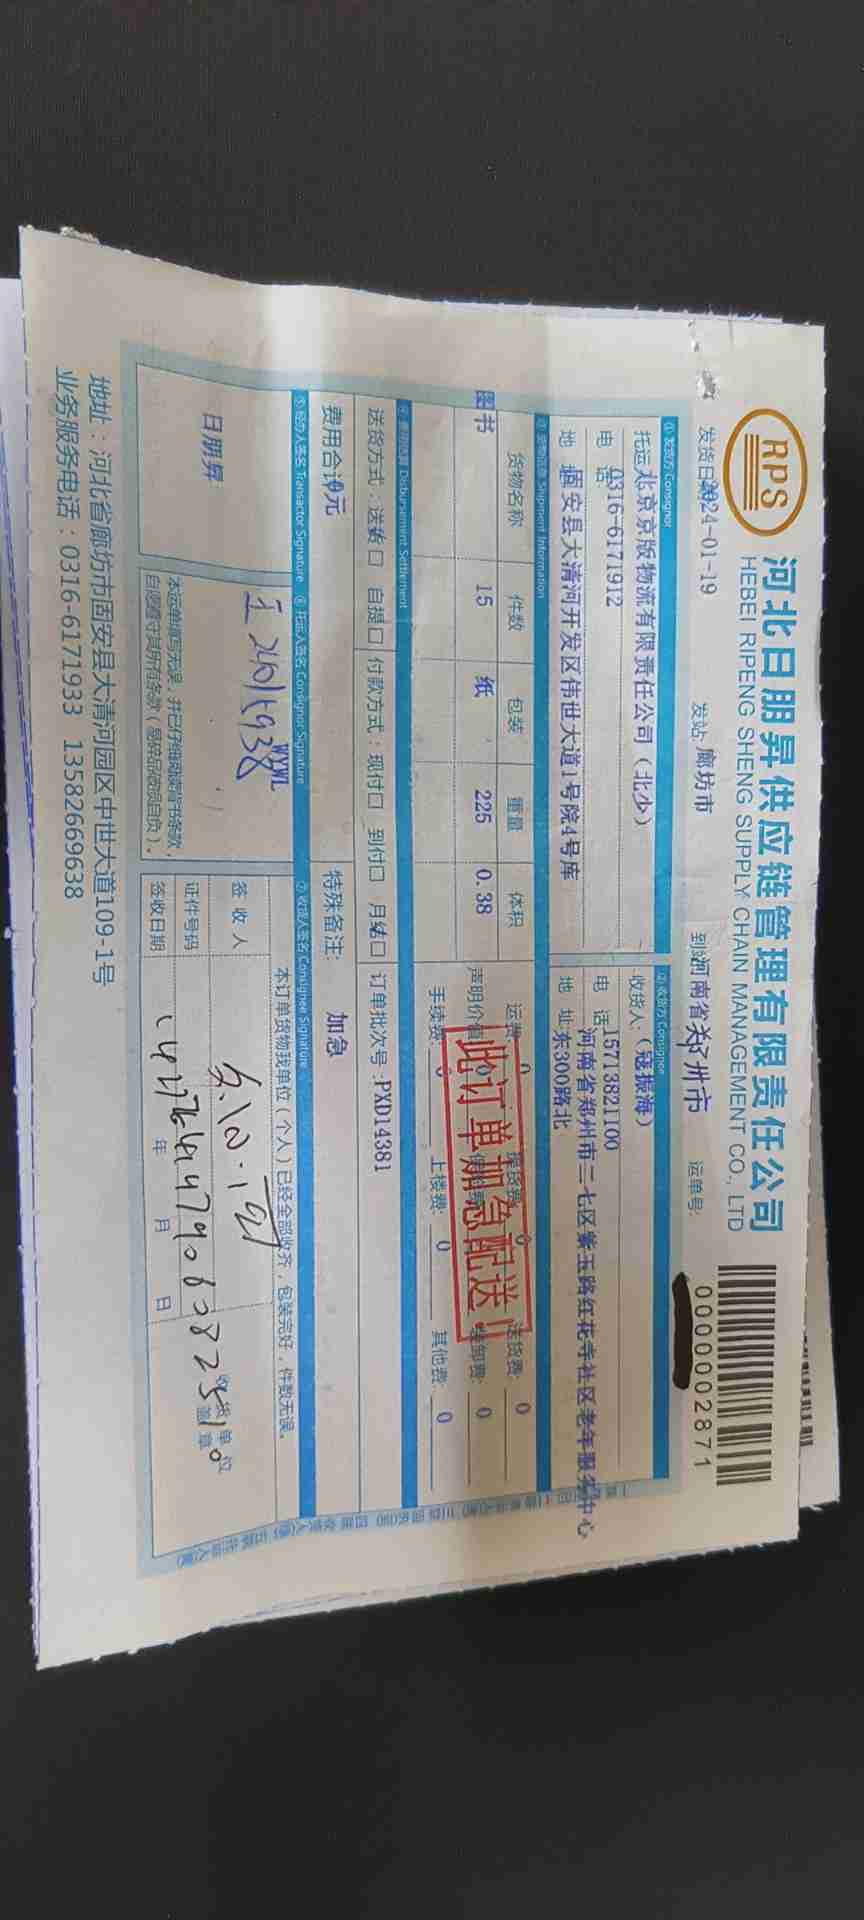 RPS
河北日朋昇供应链管理有限责任公司
HEBEI RIPENG SHENG SUPPLY CHAIN MANAGEMENT CO., LTD
0000002871
发货日期 2024-01-19 发站: 廊坊市 到站 河南省郑州市 运单号:
① 发货方 Consignor ② 收货方 Consignee
托运 北京京版物流有限责任公司（北少） 收货人:（寇振海）
电 话 0316-6171912 电 话 15713821100
地 址 固安县大清河开发区伟世大道1号院4号库 地 址 河南省郑州市二七区紫玉路红花寺社区老年服务中心
东300路北
③ 货物信息 Shipment Information
货物名称 件数 包装 重量 体积 运费: 0 提货费: 0 送货费: 0
图书 15 纸 225 0.38 声明价值: 0 保险费: 装卸费: 0
手续费: 0 上楼费: 0 其他费: 0
此订单加急配送
④ 费用结算 Disbursement Settlement
送货方式: 送货 自提 付款方式: 现付 到付 月结 订单批次号: PXD14381
费用合计 0元 特殊备注: 加急
⑤ 经办人签名 Transactor Signature ⑥ 托运人签名 Consignor Signature ⑦ 收货人签名 Consignee Signature
日朋昇
WYWL
本订单货物我单位（个人）已经全部收齐，包装完好，件数无误。
签 收 人
证件号码
签收日期 年 月 日
收货单位
盖 章
本运单填写无误，并已仔细阅读背书条款，
自愿遵守其所有条款（易碎品破损自负）。
地址：河北省廊坊市固安县大清河园区中世大道109-1号
业务服务电话：0316-6171933 13582669638